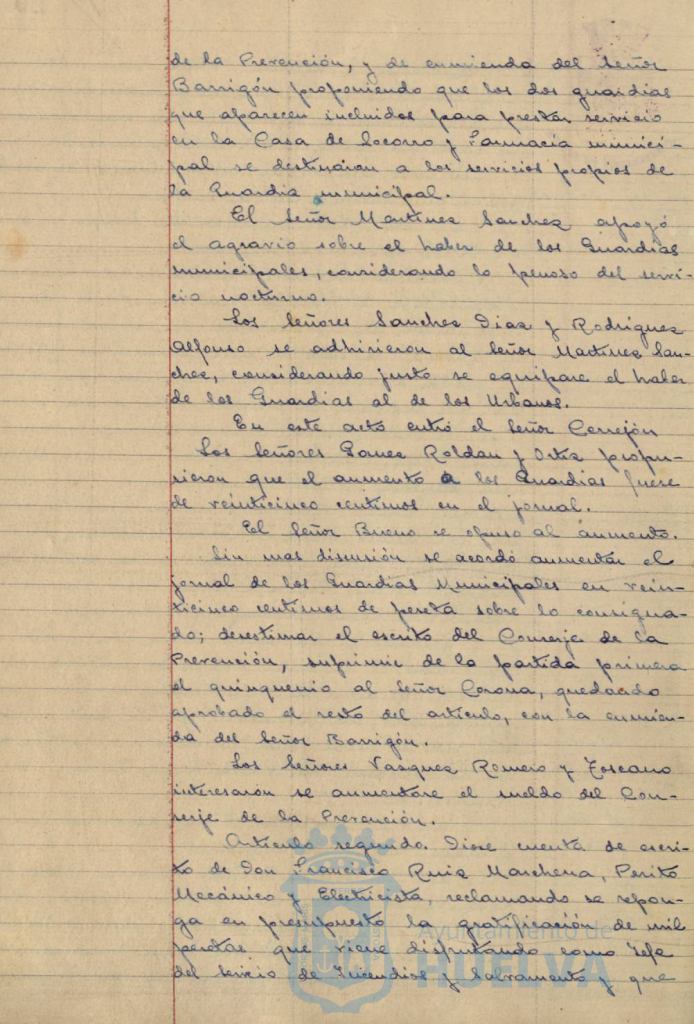 de la Prevención, y de enmienda del Señor
Barrigón proponiendo que los dos guardias
que aparecen incluidos para prestar servicio
en la Casa de Socorro y Farmacia munici-
pal se destinaran a los servicios propios de
la Guardia municipal.
El Señor Martinez Sanchez apoyó
el agravio sobre el haber de los Guardias
municipales, considerando lo penoso del servi-
cio nocturno.
Los Señores Sanchez Diaz y Rodriguez
Alfonso se adhirieron al Señor Martinez San-
chez, considerando justo se equipare el haber
de los Guardias al de los Urbanos.
En este acto entró el Señor Cerrejón
Los Señores Gomez Roldan y Ortiz propu-
sieron que el aumento a los Guardias fuese
de veinticinco centimos en el jornal.
El Señor Bueno se opuso al aumento.
Sin mas discusión se acordó aumentar el
jornal de los Guardias Municipales en vein-
ticinco centimos de peseta sobre lo consigna-
do; desestimar el escrito del Conserje de la
Prevención, suprimir de la partida primera
el quinquenio al Señor Corona, quedando
aprobado el resto del artículo, con la enmien-
da del Señor Barrigón.
Los Señores Vazquez Romero y Toscano
interesaron se aumentare el sueldo del Con-
serje de la Prevención.
Artículo segundo. Diose cuenta de escri-
to de Don Francisco Ruiz Marchena, Perito
Mecánico y Electricista, reclamando se repon-
ga en presupuesto la gratificación de mil
pesetas que viene disfrutando como Jefe
del Servicio de Incendios y Salvamento y que
Ayuntamiento de
HUELVA